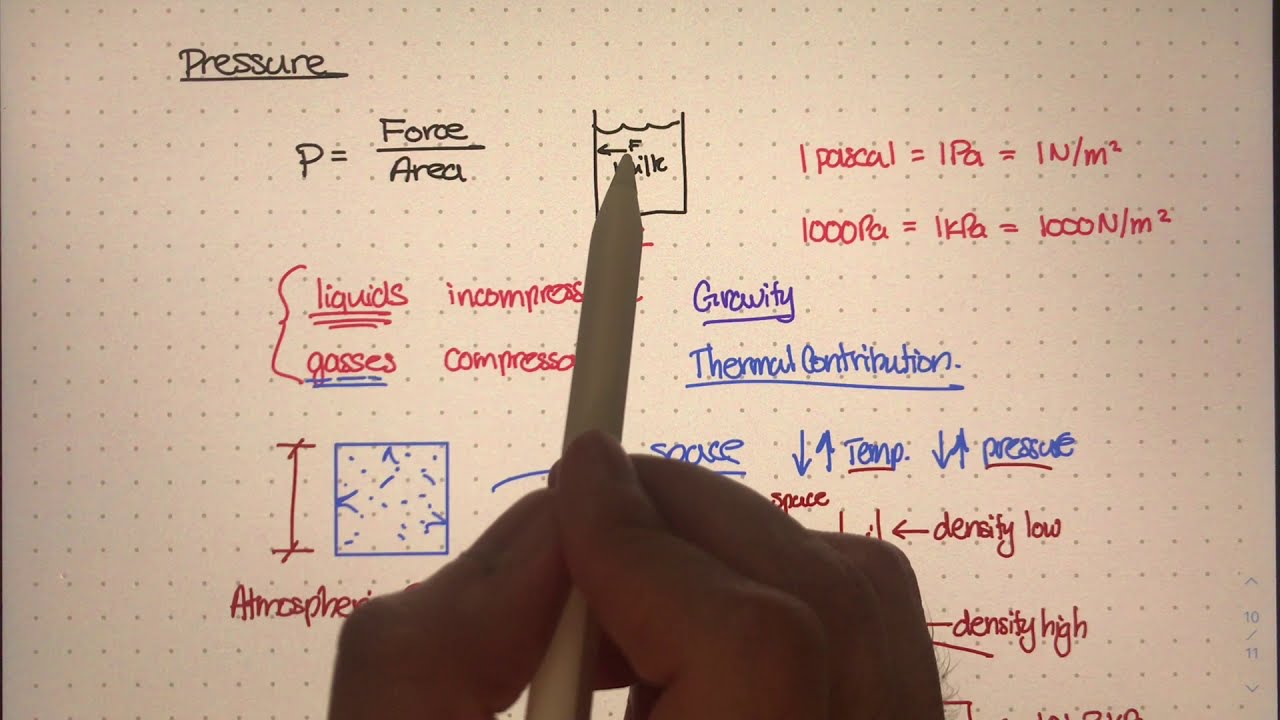 Pressure
P = Force / Area
F
milk
1 pascal = 1Pa = 1N/m²
1000Pa = 1kPa = 1000N/m²
liquids incompress
Gravity
gasses compress
Thermal Contribution.
space ↓↑ Temp. ↓↑ pressure
space
← density low
Atmospheric
density high
10
/
11